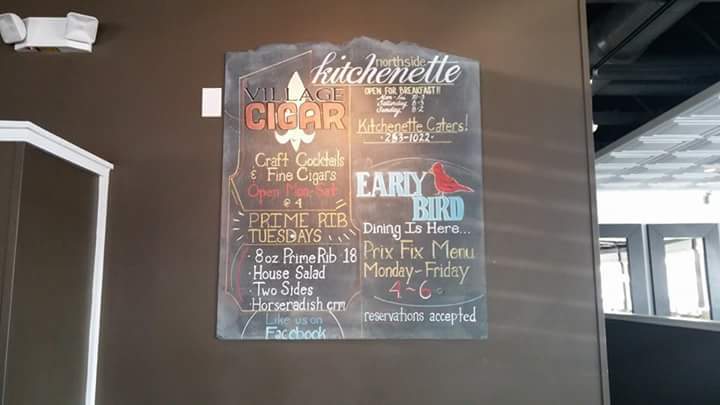 northside
kitchenette
OPEN FOR BREAKFAST!!
Saturday 8-3
Sunday 8-2
Kitchenette Caters!
·283-1022·
VILLAGE
CIGAR
Craft Cocktails
& Fine Cigars
Open Mon-Sat
@ 4
PRIME RIB
TUESDAYS
· 8 oz Prime Rib 18
· House Salad
· Two Sides
· Horseradish crm
Like us on
Facebook
EARLY
BIRD
Dining Is Here...
Prix Fix Menu
Monday-Friday
4-6
reservations accepted